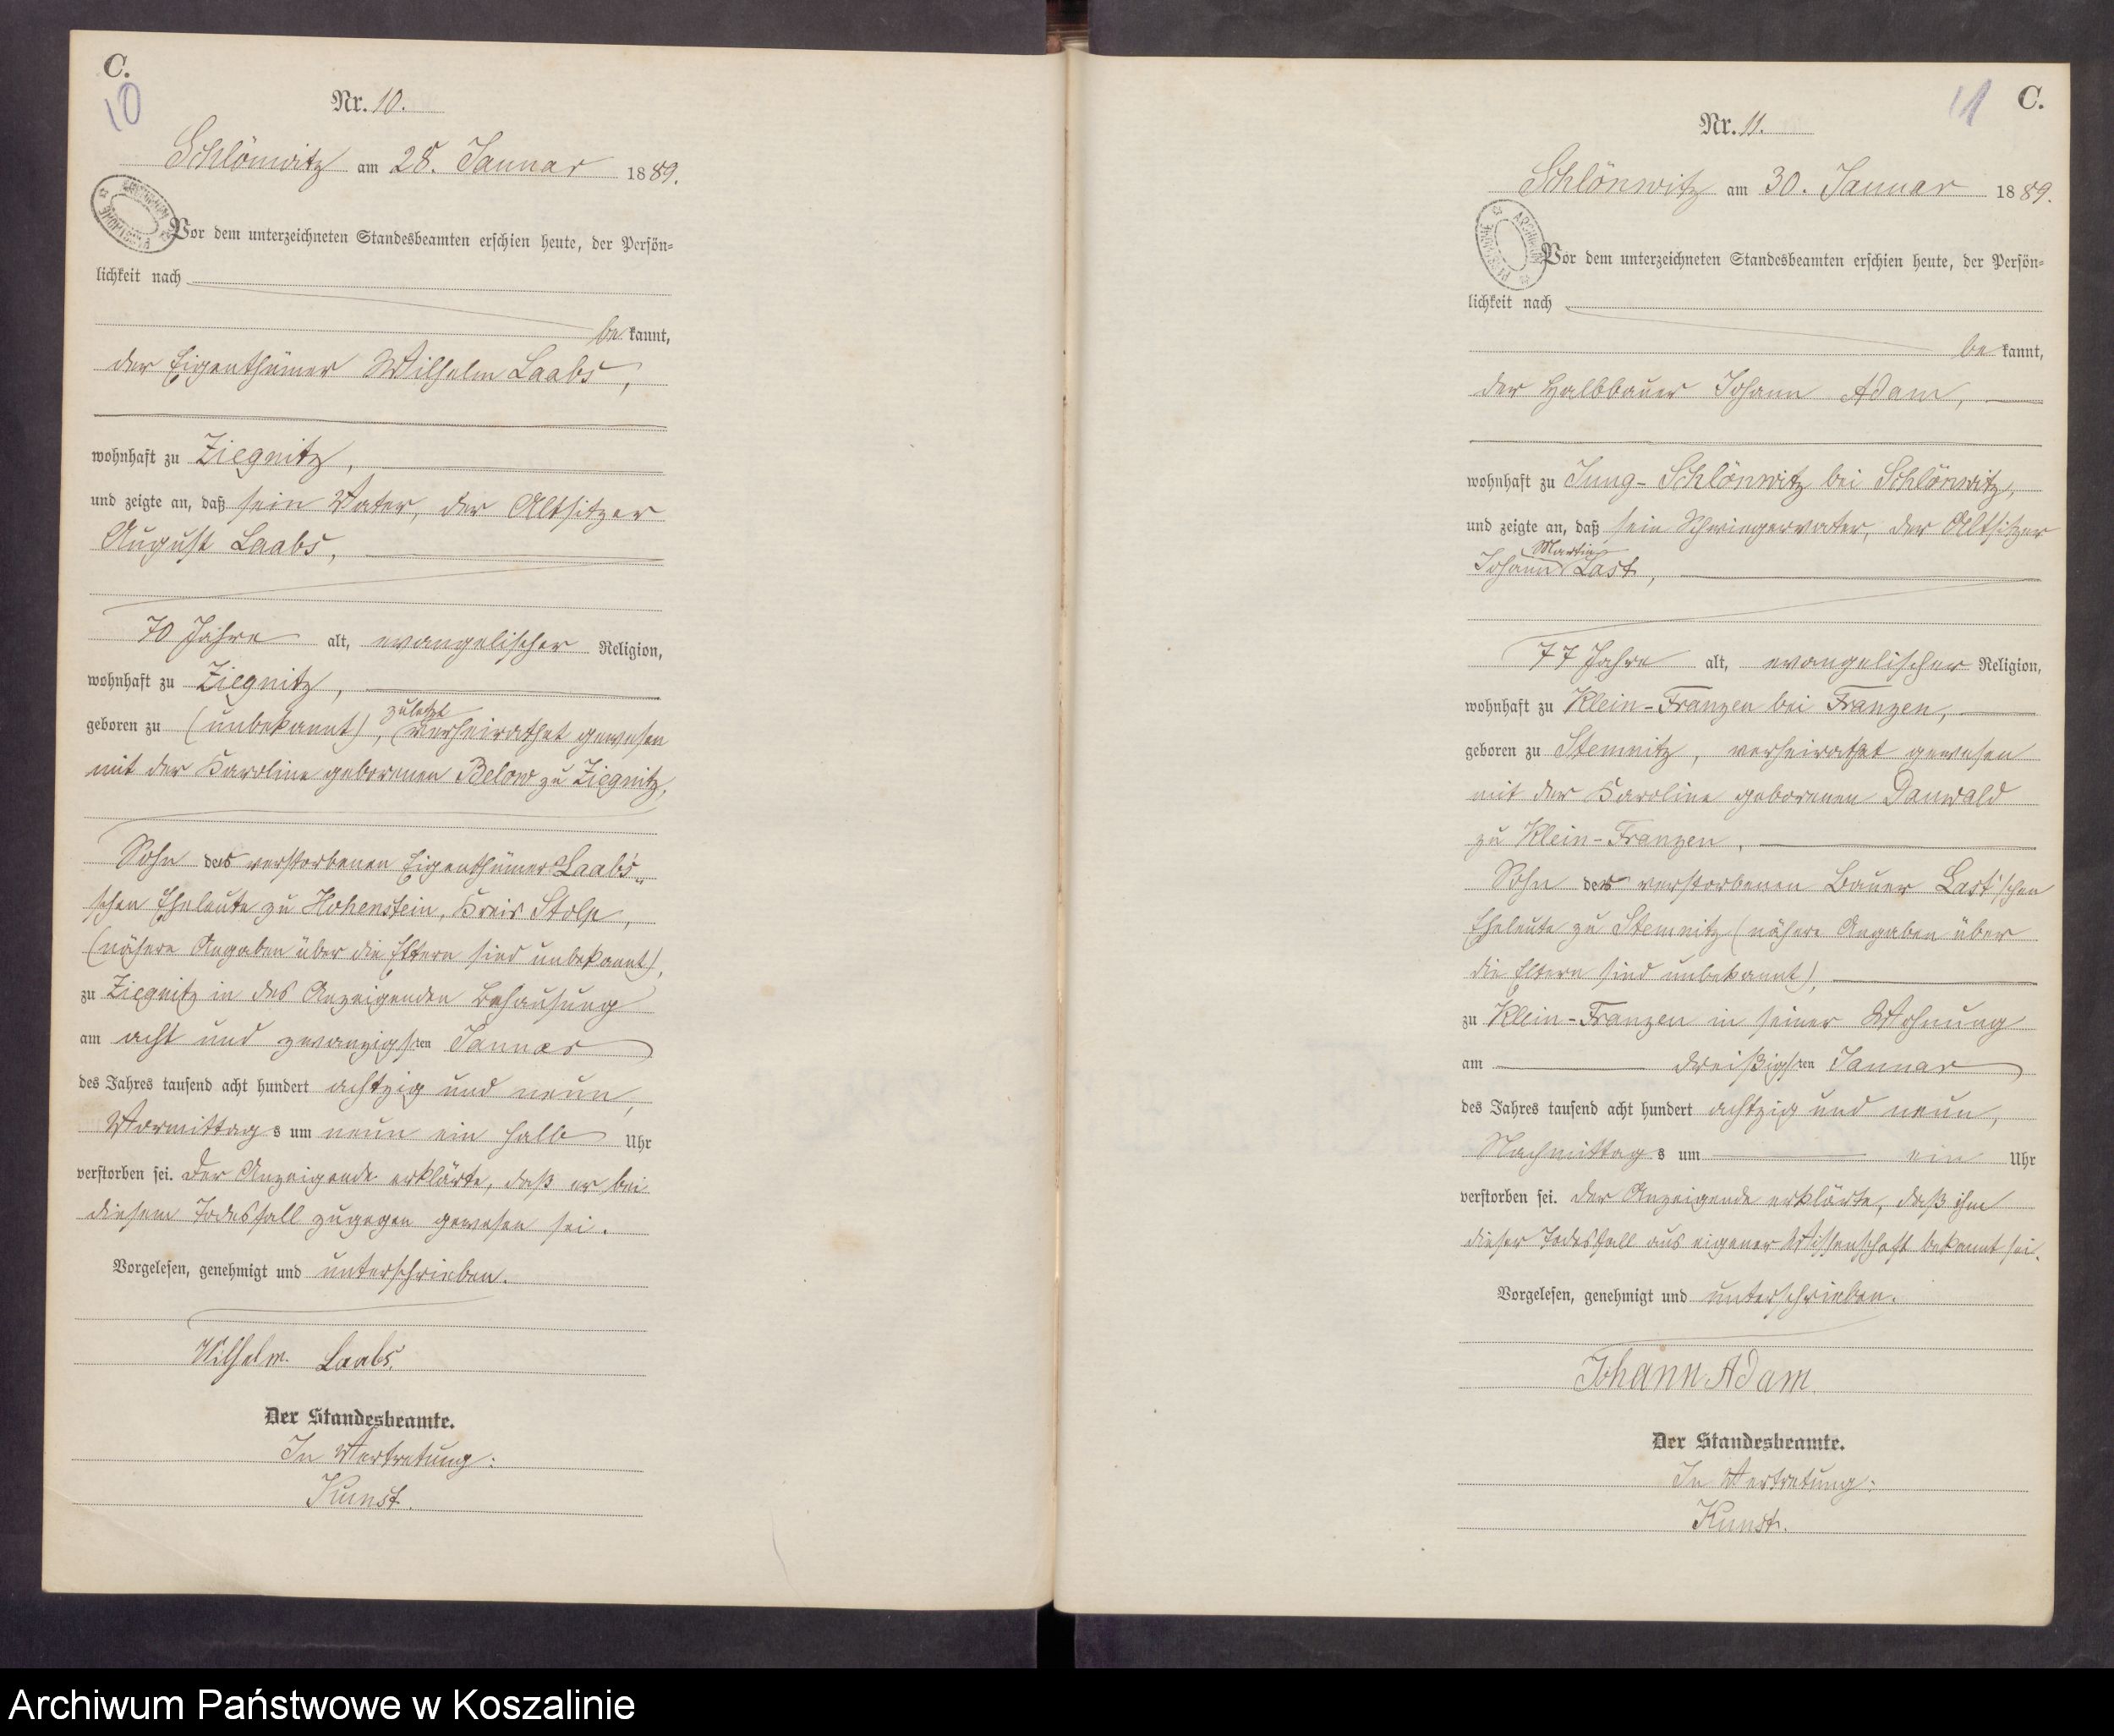 C.
10
Nr. 10.
Schlönwitz am 28. Januar 1889.
Vor dem unterzeichneten Standesbeamten erschien heute, der Persön-
lichkeit nach
be kannt,
der Eigenthümer Wilhelm Laabs,
wohnhaft zu Ziegnitz,
und zeigte an, daß sein Vater, der Altsitzer
August Laabs,
70 Jahre alt, evangelischer Religion,
wohnhaft zu Ziegnitz,
zuletzt
geboren zu (unbekannt), verheirathet gewesen
mit der Karoline geborenen Below zu Ziegnitz,
Sohn der verstorbenen Eigenthümer Laabs'-
schen Eheleute zu Hohenstein, Kreis Stolp,
(nähere Angaben über die Eltern sind unbekannt),
zu Ziegnitz in des Anzeigenden Behausung
am acht und zwanzigsten Januar
des Jahres tausend acht hundert achtzig und neun,
Vormittags um neun ein halb Uhr
verstorben sei. Der Anzeigende erklärte, daß er bei
diesem Todesfall zugegen gewesen sei.
Vorgelesen, genehmigt und unterschrieben.
Wilhelm. Laabs.
Der Standesbeamte.
In Vertretung:
Kunst.
11
C.
Nr. 11.
Schlönwitz am 30. Januar 1889.
ARCHIWUM
Vor dem unterzeichneten Standesbeamten erschien heute, der Persön-
lichkeit nach
be kannt,
der Halbbauer Johann Adam,
wohnhaft zu Jung-Schlönwitz bei Schlönwitz,
und zeigte an, daß sein Schwiegervater, der Altsitzer
Martin
Johann Last,
77 Jahre alt, evangelischer Religion,
wohnhaft zu Klein-Franzen bei Franzen,
geboren zu Stemnitz, verheirathet gewesen
mit der Karoline geborenen Danwald
zu Klein-Franzen,
Sohn der verstorbenen Bauer Last'schen
Eheleute zu Stemnitz (nähere Angaben über
die Eltern sind unbekannt),
zu Klein-Franzen in seiner Wohnung
am dreißigsten Januar
des Jahres tausend acht hundert achtzig und neun,
Nachmittags um ein Uhr
verstorben sei. Der Anzeigende erklärte, daß ihm
dieser Todesfall aus eigener Wissenschaft bekannt sei.
Vorgelesen, genehmigt und unterschrieben.
Johann Adam.
Der Standesbeamte.
In Vertretung:
Kunst.
Archiwum Państwowe w Koszalinie